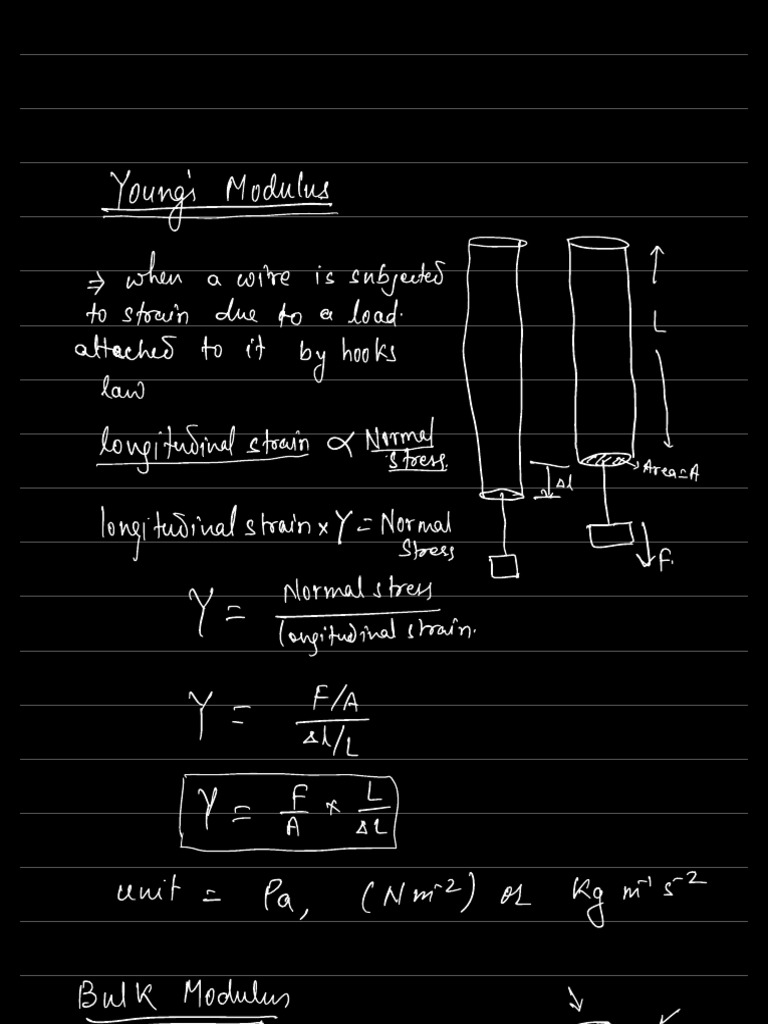 Young's Modulus
⇒ when a wire is subjected
to strain due to a load.
attached to it by hooks
law
longitudinal strain ∝ Normal
stress.
longitudinal strain × Y = Normal
Stress
Y = Normal stress
longitudinal strain.
Y = F/A
Δl/L
Y = F/A × L/ΔL
unit = Pa, (N m⁻²) or Kg m⁻¹ s⁻²
L
Area = A
Δl
F.
Bulk Modulus